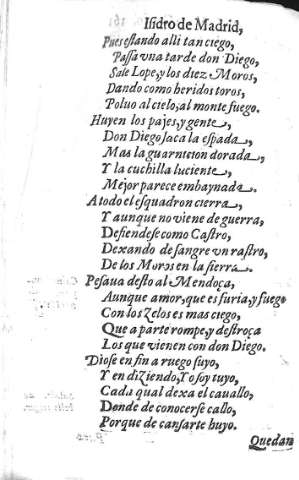 Isidro de Madrid,
Pues estando alli tan ciego,
Passa vna tarde don Diego,
Sale Lope, y los diez Moros,
Dando como heridos toros,
Poluo al cielo, al monte fuego.
Huyen los pajes, y gente,
Don Diego saca la espada,
Mas la guarnicion dorada,
Y la cuchilla luciente,
Mejor parece embaynada.
A todo el esquadron cierra,
Y aunque no viene de guerra,
Defiendese como Castro,
Dexando de sangre vn rastro,
De los Moros en la sierra.
Pesaua desto al Mendoça,
Aunque amor, que es furia, y fuego
Con los zelos es mas ciego,
Que a parte rompe, y destroça
Los que vienen con don Diego.
Diose en fin a ruego suyo,
Y en diziendo, Yo soy tuyo,
Cada qual dexa el cauallo,
Donde de conocerse callo,
Porque de cansarte huyo.
Quedan